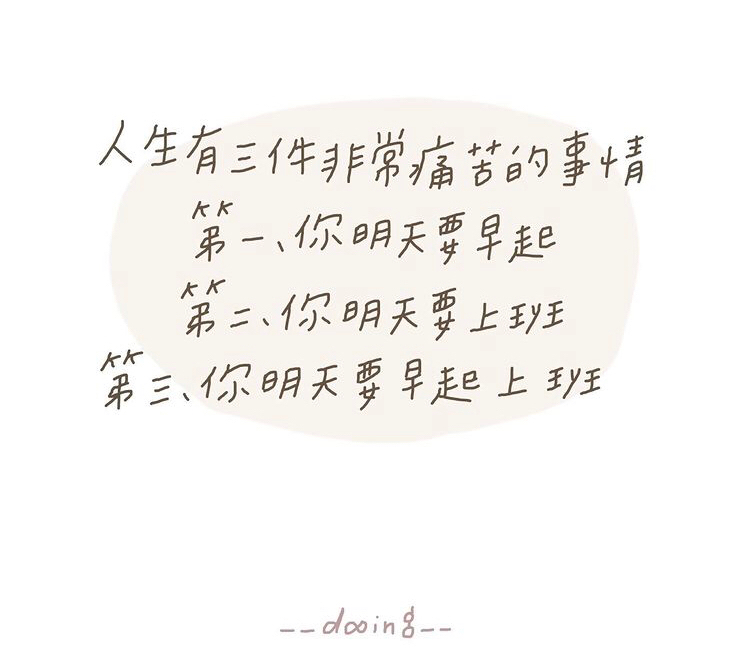 人生有三件非常痛苦的事情
第一、你明天要早起
第二、你明天要上班
第三、你明天要早起上班
--dooing--